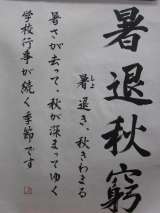 暑退秋窮
暑退き、秋きわまる
しょ
暑さが去って、秋が深まってゆく
学校行事が続く季節です